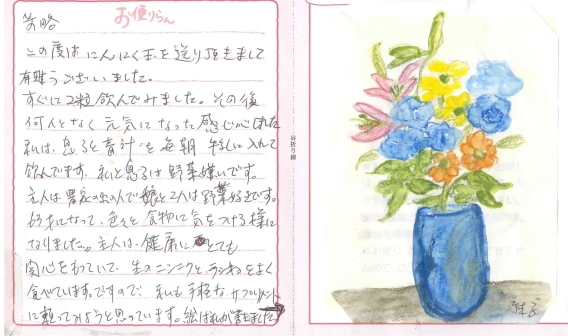 お便りらん
前略
この度は にんにく玉を送り頂きまして
有難うございました。
すぐに2粒飲んでみました。その後
何となく元気になった感じがしました
私は、息子と青汁を毎朝 牛乳に入れて
飲んでます。私と息子は野菜嫌いです。
主人は農家の出の人で娘と2人は野菜好きです。
になって、色々と食物に気をつける様に
なりました。主人は、健康に とても
関心をもっていて、生のニンニクと、ラッキョをよく
食べています。ですので、私も手軽な、サプリメント
に頼ってみようと思っています。絵は私が書きました。
谷折り線